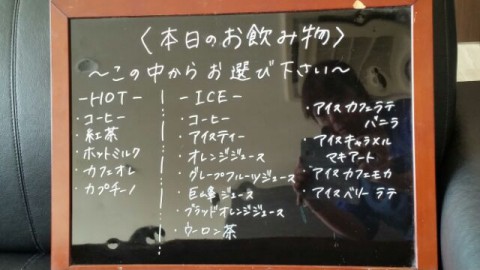 〈本日のお飲み物〉
～この中からお選び下さい～
－HOT－
・コーヒー
・紅茶
・ホットミルク
・カフェオレ
・カプチーノ
－ICE－
・コーヒー
・アイスティー
・オレンジジュース
・グレープフルーツジュース
・巨峰ジュース
・ブラッドオレンジジュース
・ウーロン茶
・アイスカフェラテ
バニラ
・アイスキャラメル
マキアート
・アイスカフェモカ
・アイスベリーラテ